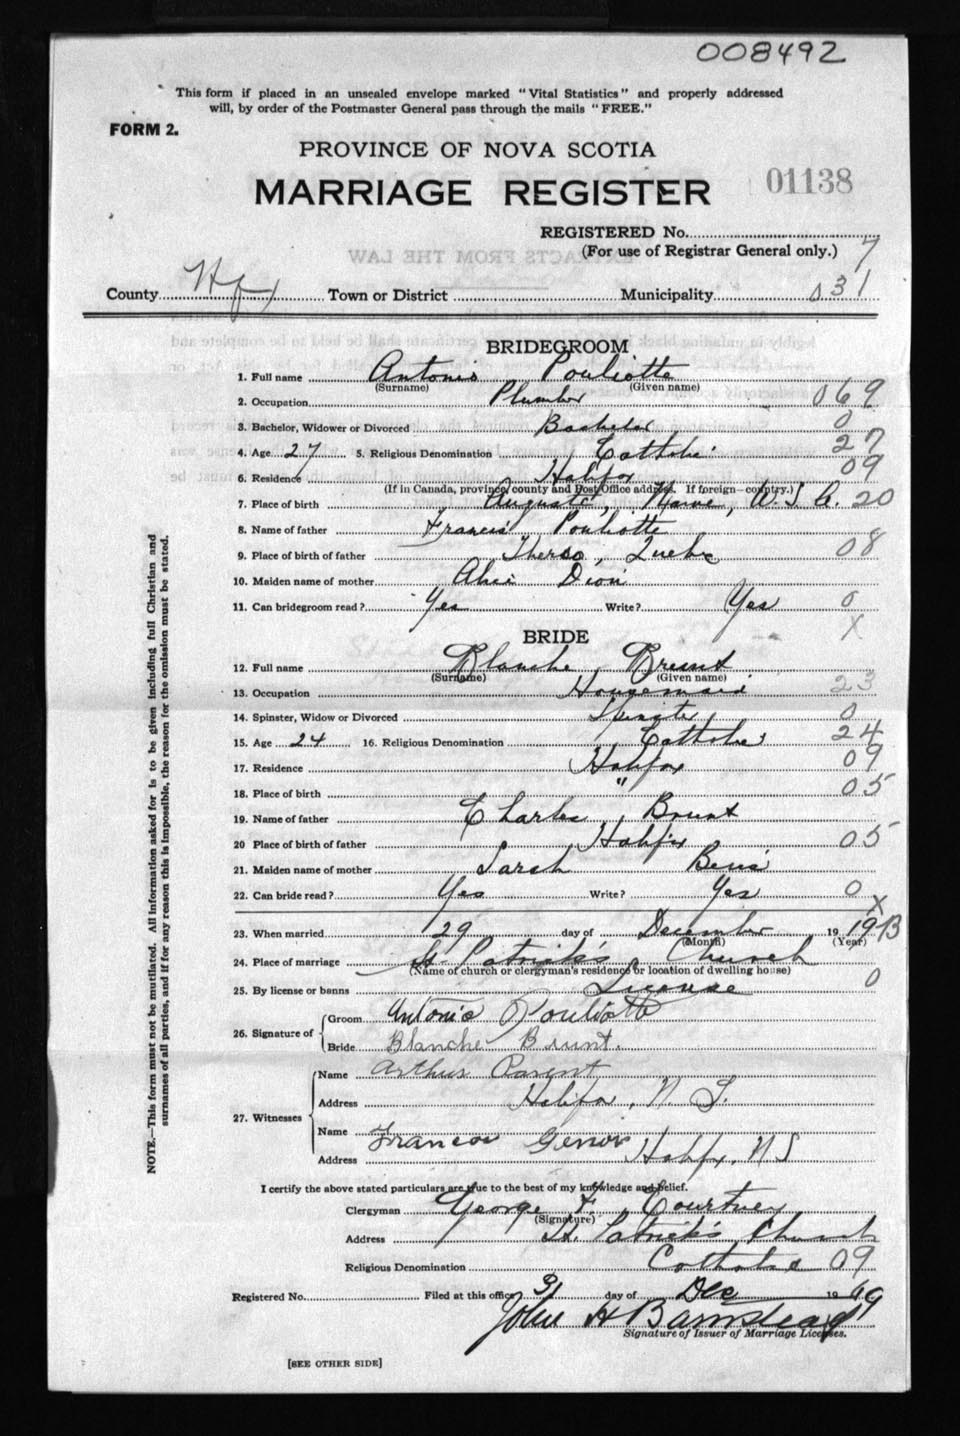 008492
This form if placed in an unsealed envelope marked "Vital Statistics" and properly addressed
will, by order of the Postmaster General pass through the mails "FREE."
FORM 2.
PROVINCE OF NOVA SCOTIA
MARRIAGE REGISTER 01138
REGISTERED No.
(For use of Registrar General only.) 7
County Hfx Town or District Municipality 031
BRIDEGROOM
1. Full name Antonio Pouliotte
(Surname) (Given name)
2. Occupation Plumber 069
3. Bachelor, Widower or Divorced Bachelor 0
4. Age 27 5. Religious Denomination Catholic 27
6. Residence Halifax 09
(If in Canada, province, county and Post Office address. If foreign—country.)
7. Place of birth Augusta, Maine, U.S.A. 20
8. Name of father Francis Pouliotte
9. Place of birth of father Quebec 08
10. Maiden name of mother Alice Dion
11. Can bridegroom read? Yes Write? Yes 0
X
BRIDE
12. Full name Blanche Brunt
(Surname) (Given name)
13. Occupation Housemaid 23
14. Spinster, Widow or Divorced Spinster 0
15. Age 24 16. Religious Denomination Catholic 24
17. Residence Halifax 09
18. Place of birth " 05
19. Name of father Charles Brunt
20 Place of birth of father Halifax 05
21. Maiden name of mother Sarah
22. Can bride read? Yes Write? Yes 0
X
23. When married 29 day of December 19 19 13
(Month) (Year)
24. Place of marriage St Patrick's Church
(Name of church or clergyman's residence or location of dwelling house)
25. By license or banns License 0
26. Signature of Groom Antonio Pouliotte
Bride Blanche Brunt.
27. Witnesses Name Arthur Parent
Address Halifax, N S.
Name Francois
Address Halifax, N S
I certify the above stated particulars are true to the best of my knowledge and belief.
Clergyman George F. Courtney
(Signature)
Address St. Patrick's Church
Religious Denomination Catholic 09
Registered No. Filed at this office 31 day of Dec 19 19
John H Barnstead
Signature of Issuer of Marriage Licenses.
[SEE OTHER SIDE]
NOTE.—This form must not be mutilated. All information asked for is to be given including full Christian and
surnames of all parties, and if for any reason this is impossible, the reason for the omission must be stated.